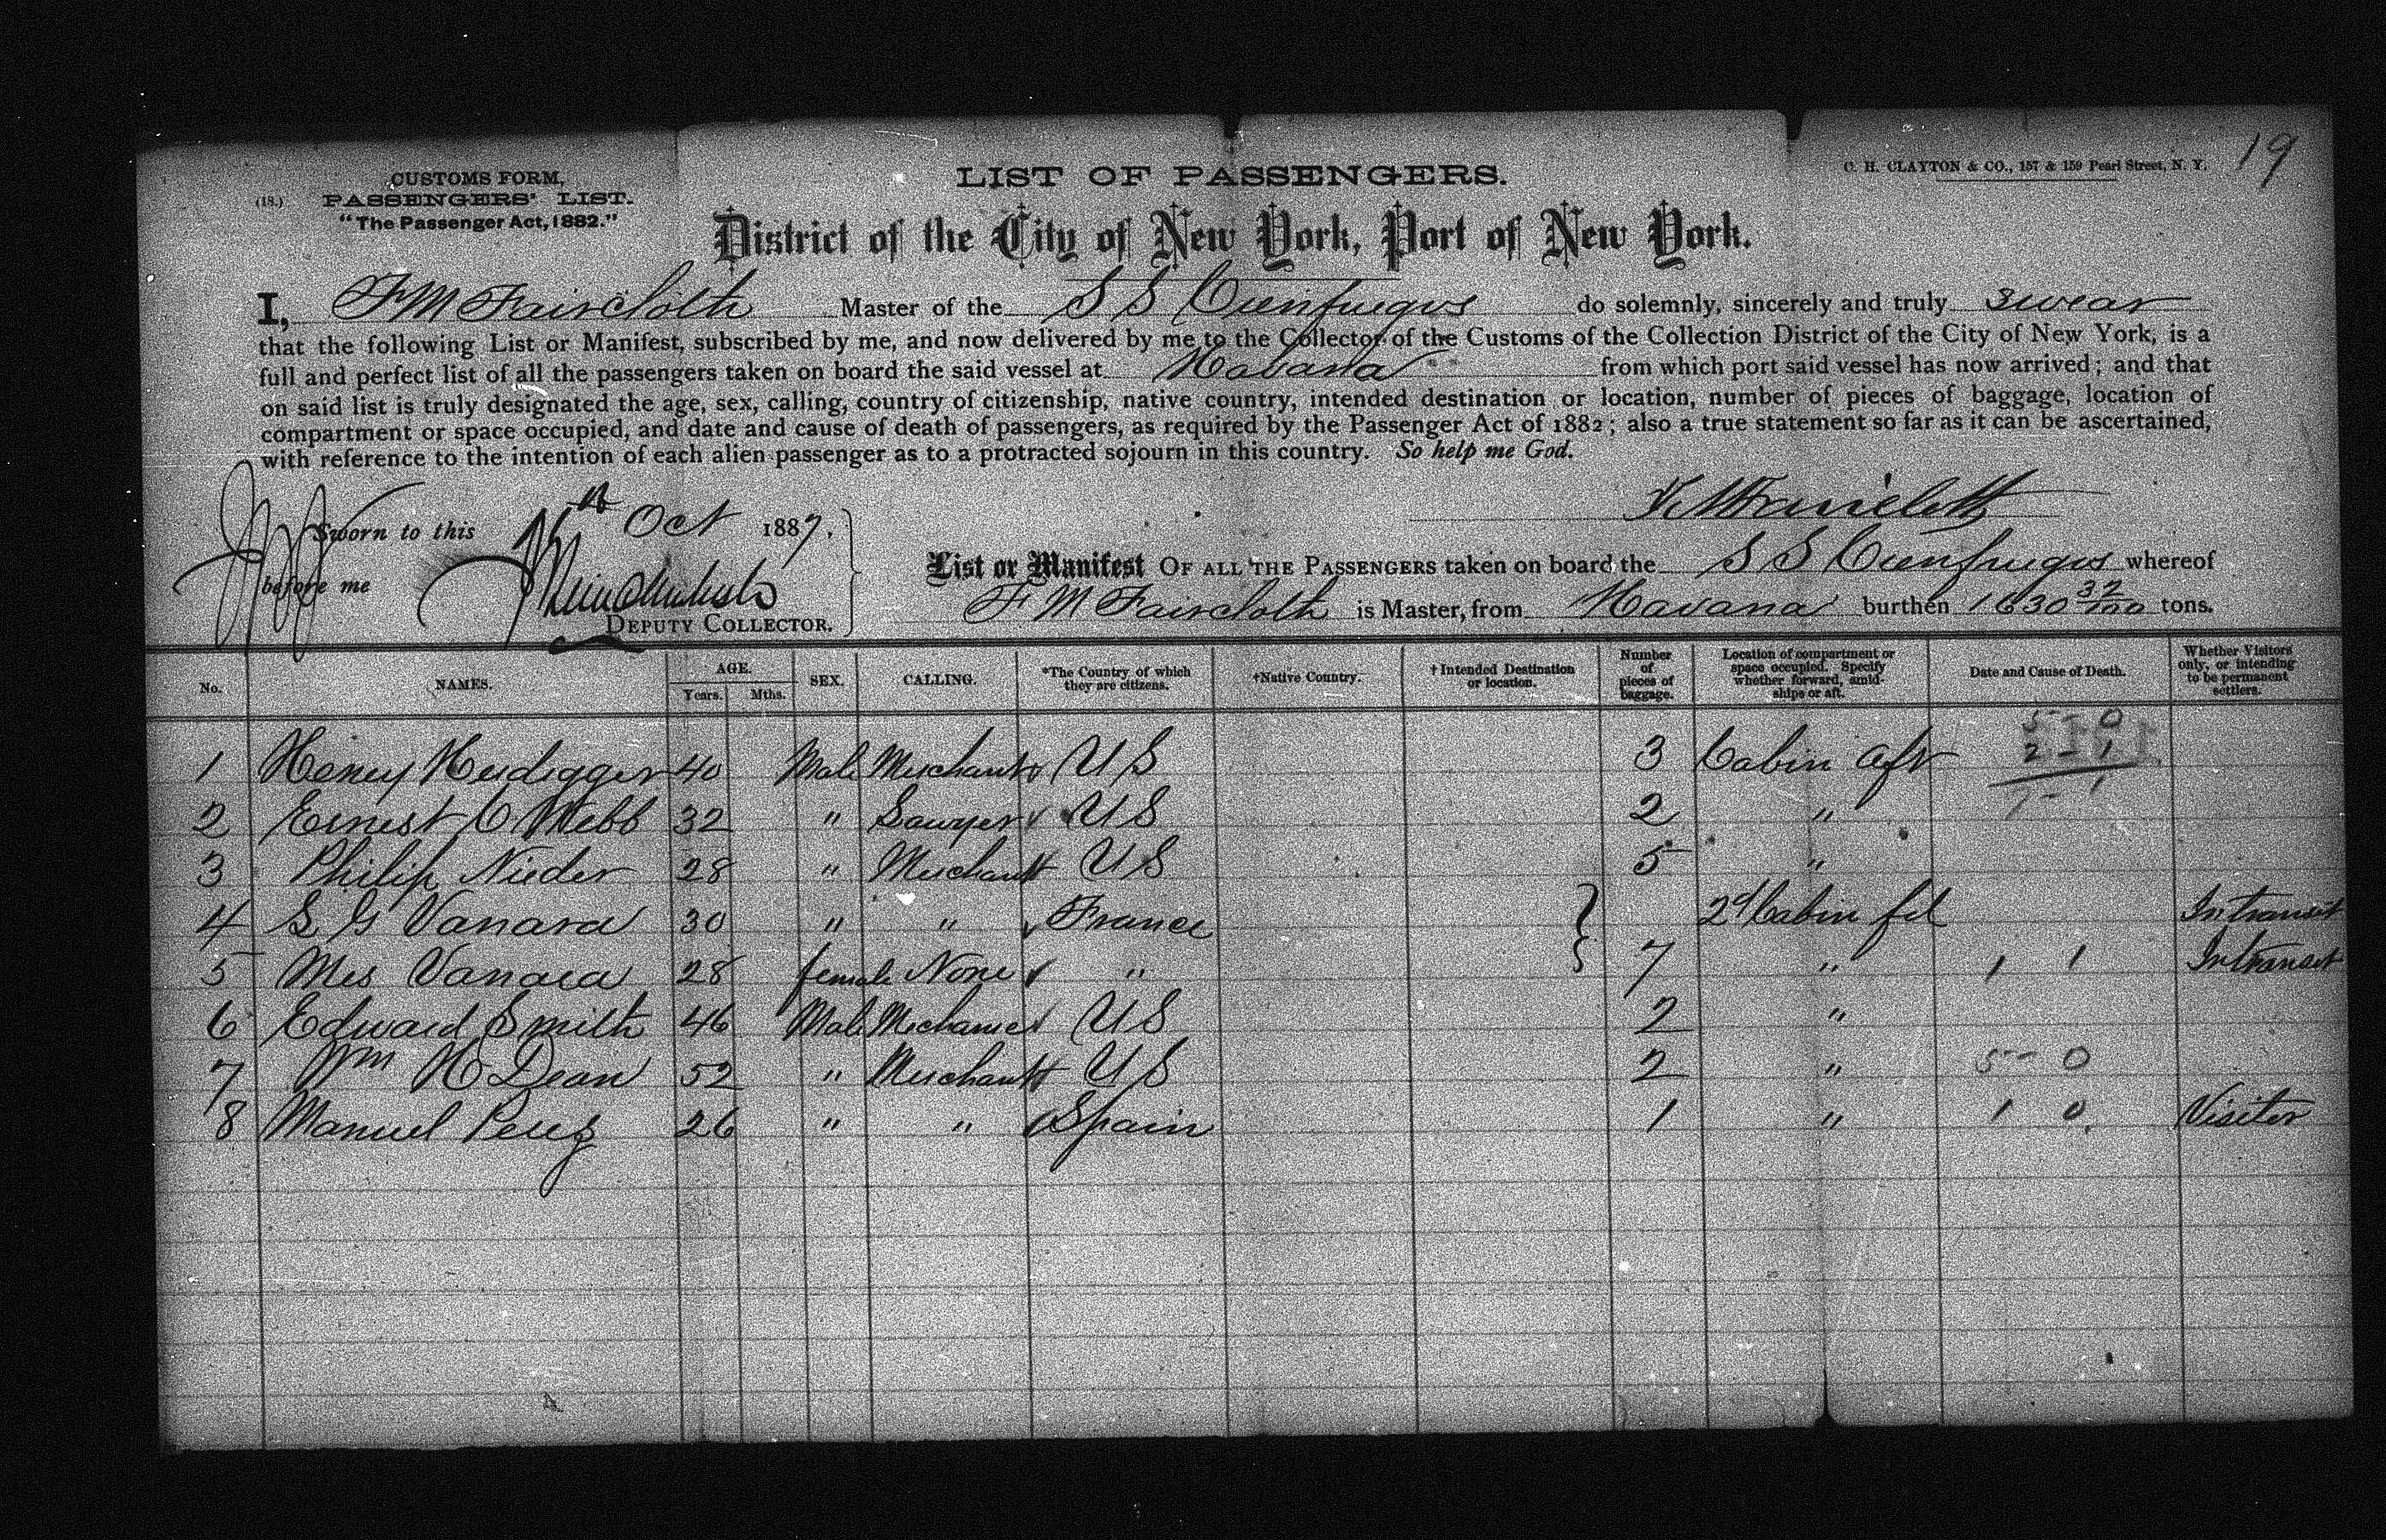 19
CUSTOMS FORM,
(18.) PASSENGERS' LIST.
"The Passenger Act, 1882."
LIST OF PASSENGERS.
C. H. CLAYTON & CO., 157 & 159 Pearl Street, N. Y.
District of the City of New York, Port of New York.
I, F M Faircloth Master of the S S Cienfuegos do solemnly, sincerely and truly swear
that the following List or Manifest, subscribed by me, and now delivered by me to the Collector of the Customs of the Collection District of the City of New York, is a
full and perfect list of all the passengers taken on board the said vessel at Habana from which port said vessel has now arrived; and that
on said list is truly designated the age, sex, calling, country of citizenship, native country, intended destination or location, number of pieces of baggage, location of
compartment or space occupied, and date and cause of death of passengers, as required by the Passenger Act of 1882; also a true statement so far as it can be ascertained,
with reference to the intention of each alien passenger as to a protracted sojourn in this country. So help me God.
F M Faircloth
Sworn to this Oct 1887,
before me
DEPUTY COLLECTOR.
List or Manifest OF ALL THE PASSENGERS taken on board the S S Cienfuegos whereof
F M Faircloth is Master, from Havana burthen 1630 32/100 tons.
No. NAMES. AGE. Years. Mths. SEX. CALLING. *The Country of which they are citizens. †Native Country. †Intended Destination or location. Number of pieces of baggage. Location of compartment or space occupied. Specify whether forward, amidships or aft. Date and Cause of Death. Whether Visitors only, or intending to be permanent settlers.
5 - 0
2 - 1
1 Henry Heidigger 40 Male Merchant US 3 Cabin aft
1 - 1
2 Ernest C Webb 32 " Sawyer US 2 "
3 Philip Nieder 28 " Merchant US 5 "
4 S G Vanara 30 " " France 2d Cabin fd Intransit
5 Mrs Vanara 28 female None " 7 " 1 1 Intransit
6 Edward Smith 46 Male Mechanic US 2 "
7 Wm H Dean 52 " Merchant US 2 " 5 - 0
8 Manuel Perez 26 " " Spain 1 " 1 0 Visitor